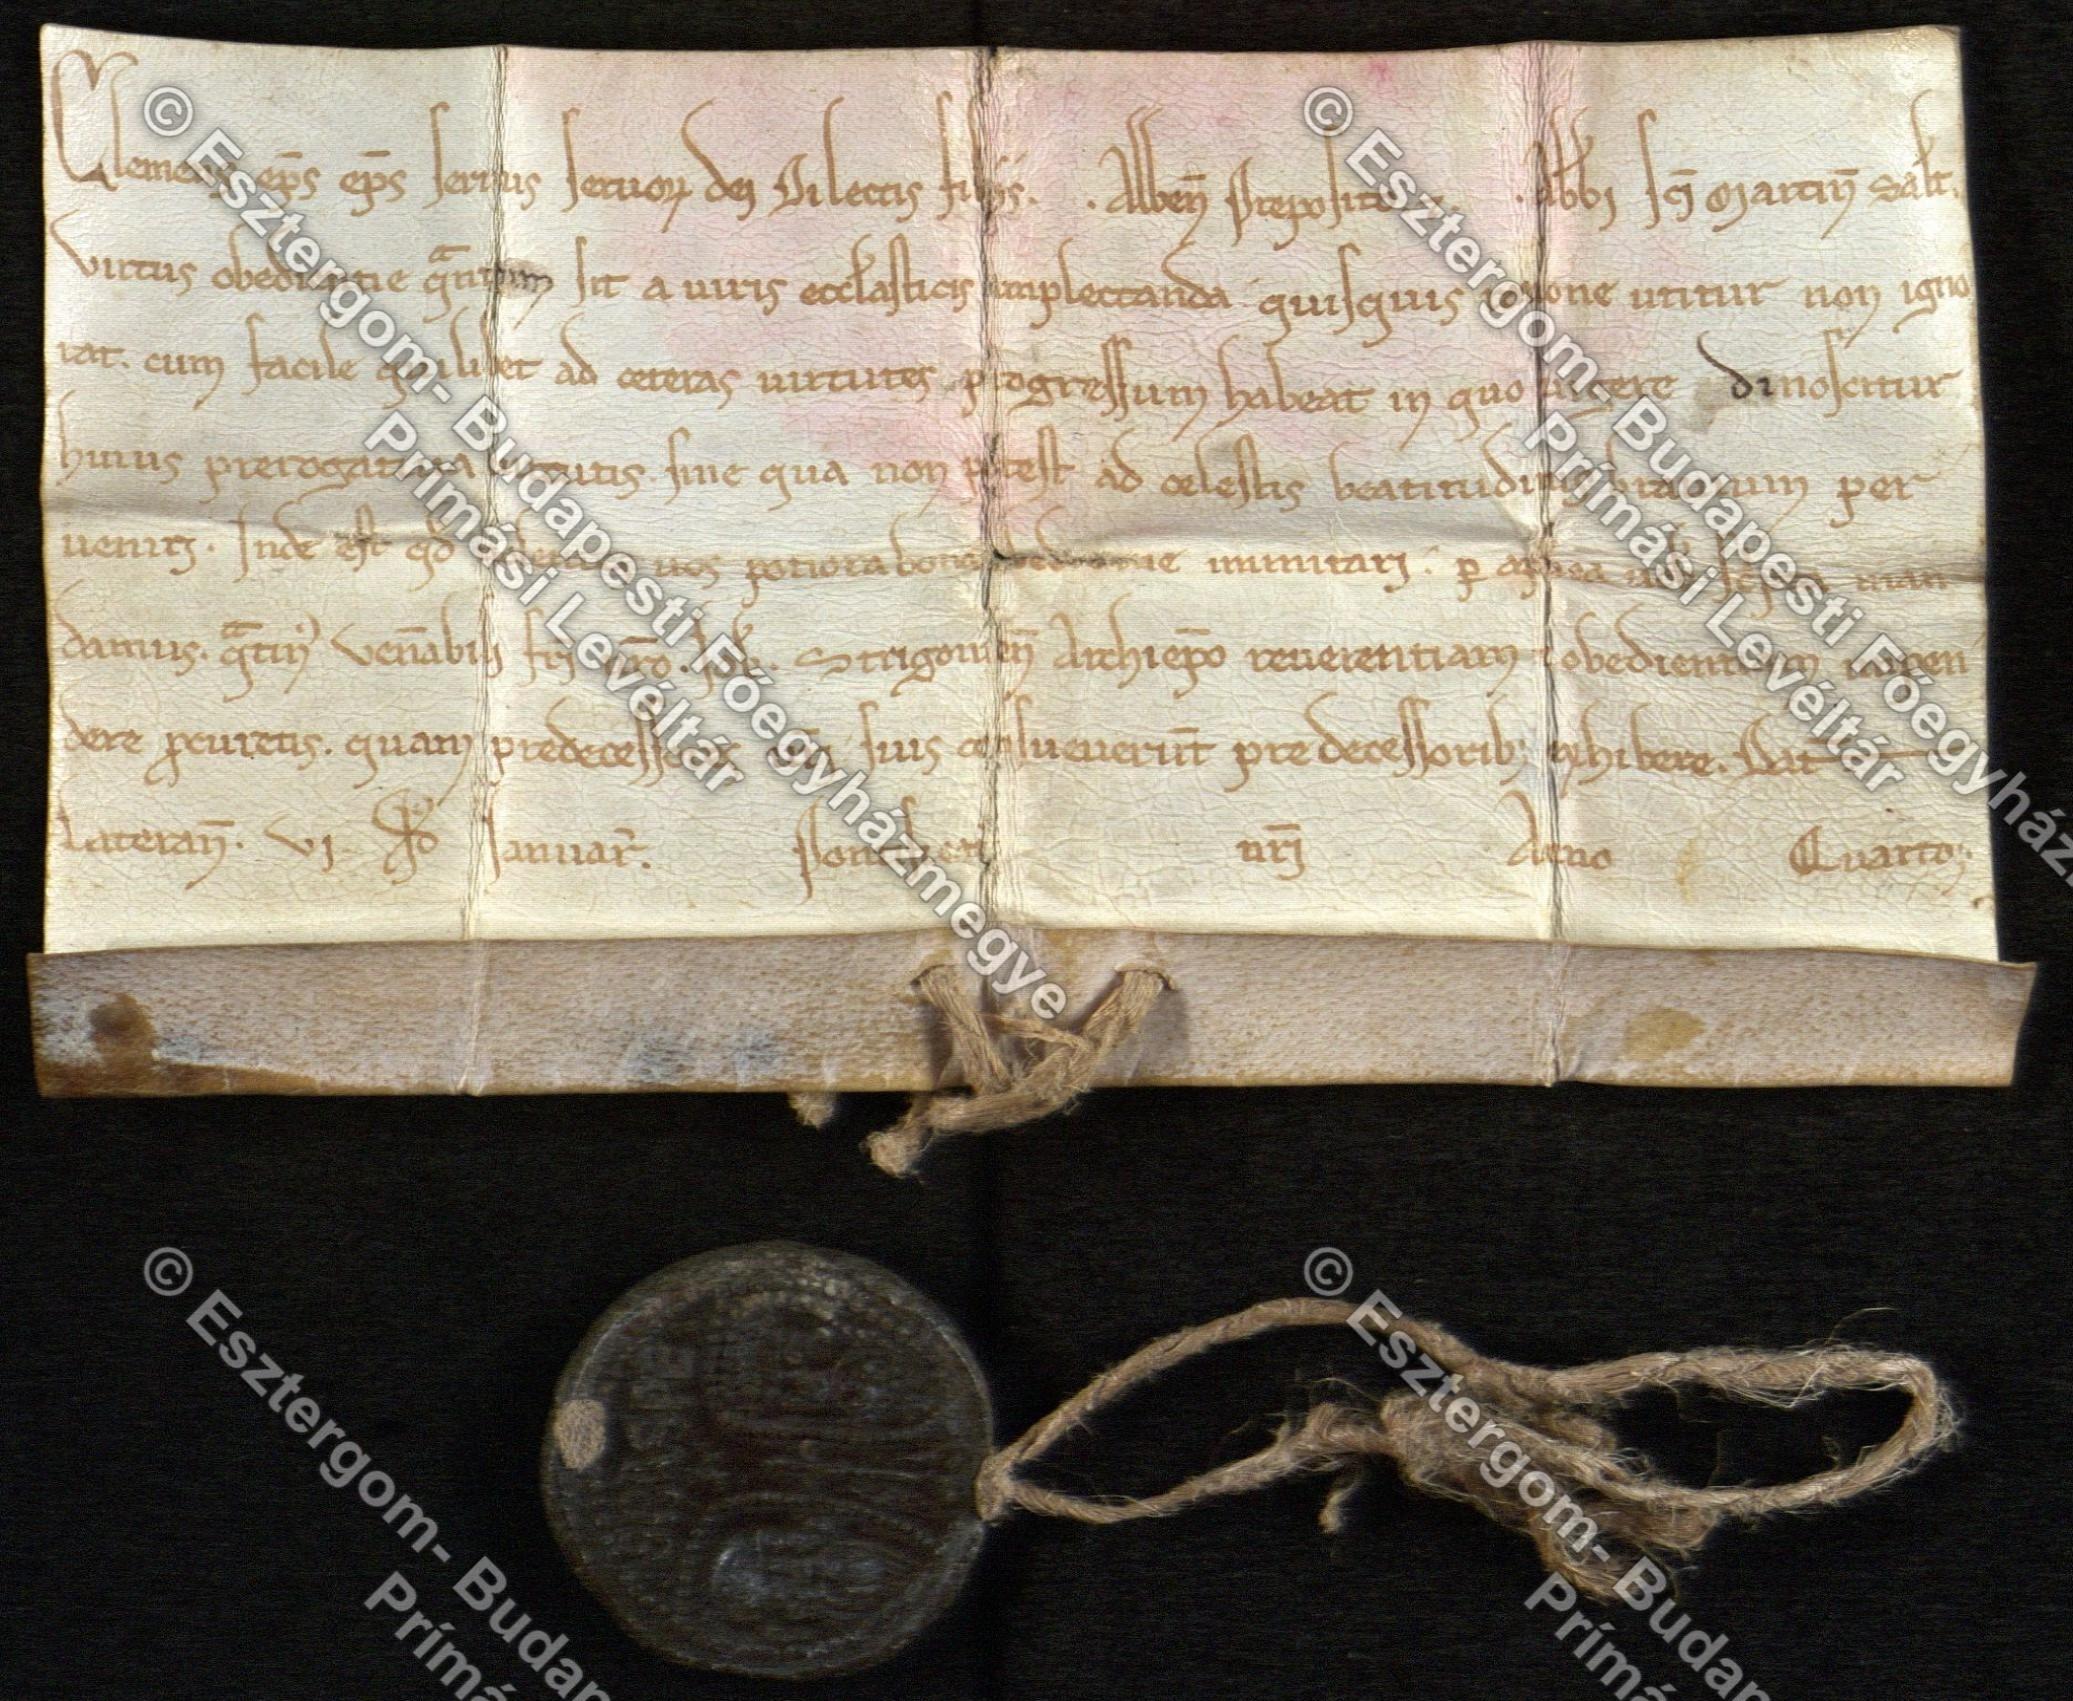 Clemens ep̄s ep̄s seruus seruoꝝ dei Dilectis filijs. . Alben̄ Preposito . . Abb̄i sc̄i Martin̄ Salt̄.
Virtus obedientie qͣntum sit a uiris ecclesiasticis amplectanda quisquis ratione utitur non igno
rat. cum facile quilibet ad ceteras uirtutes progressum habeat in quo uigere dinoscitur
huius prerogatiua uirtutis. sine qua non potest ad celestis beatitudinis brauium per
ueniri. Inde est qd̄ uos potiora bona obedientie immitari. ꝑ man
damus. qͣtin᾽ Ven̄abili fr̄i Strigonien̄ Archiep̄o reuerentiam ⁊ obedientiam inpen
dere ꝓcuretis. quam predecessores suis consueuerūt predecessorib; exhibere. Dat̄
Lateran̄. VI. kl̄ Januar̄. Pontificat᾽ nr̄i Anno Quarto.
© Esztergom- Budapesti Főegyházmegye
Prímási Levéltár
© Esztergom- Budapesti Főegyház
Prímási Levéltár
© Esztergom- Budap
Prímá
© Esztergom- Budap
Prímá